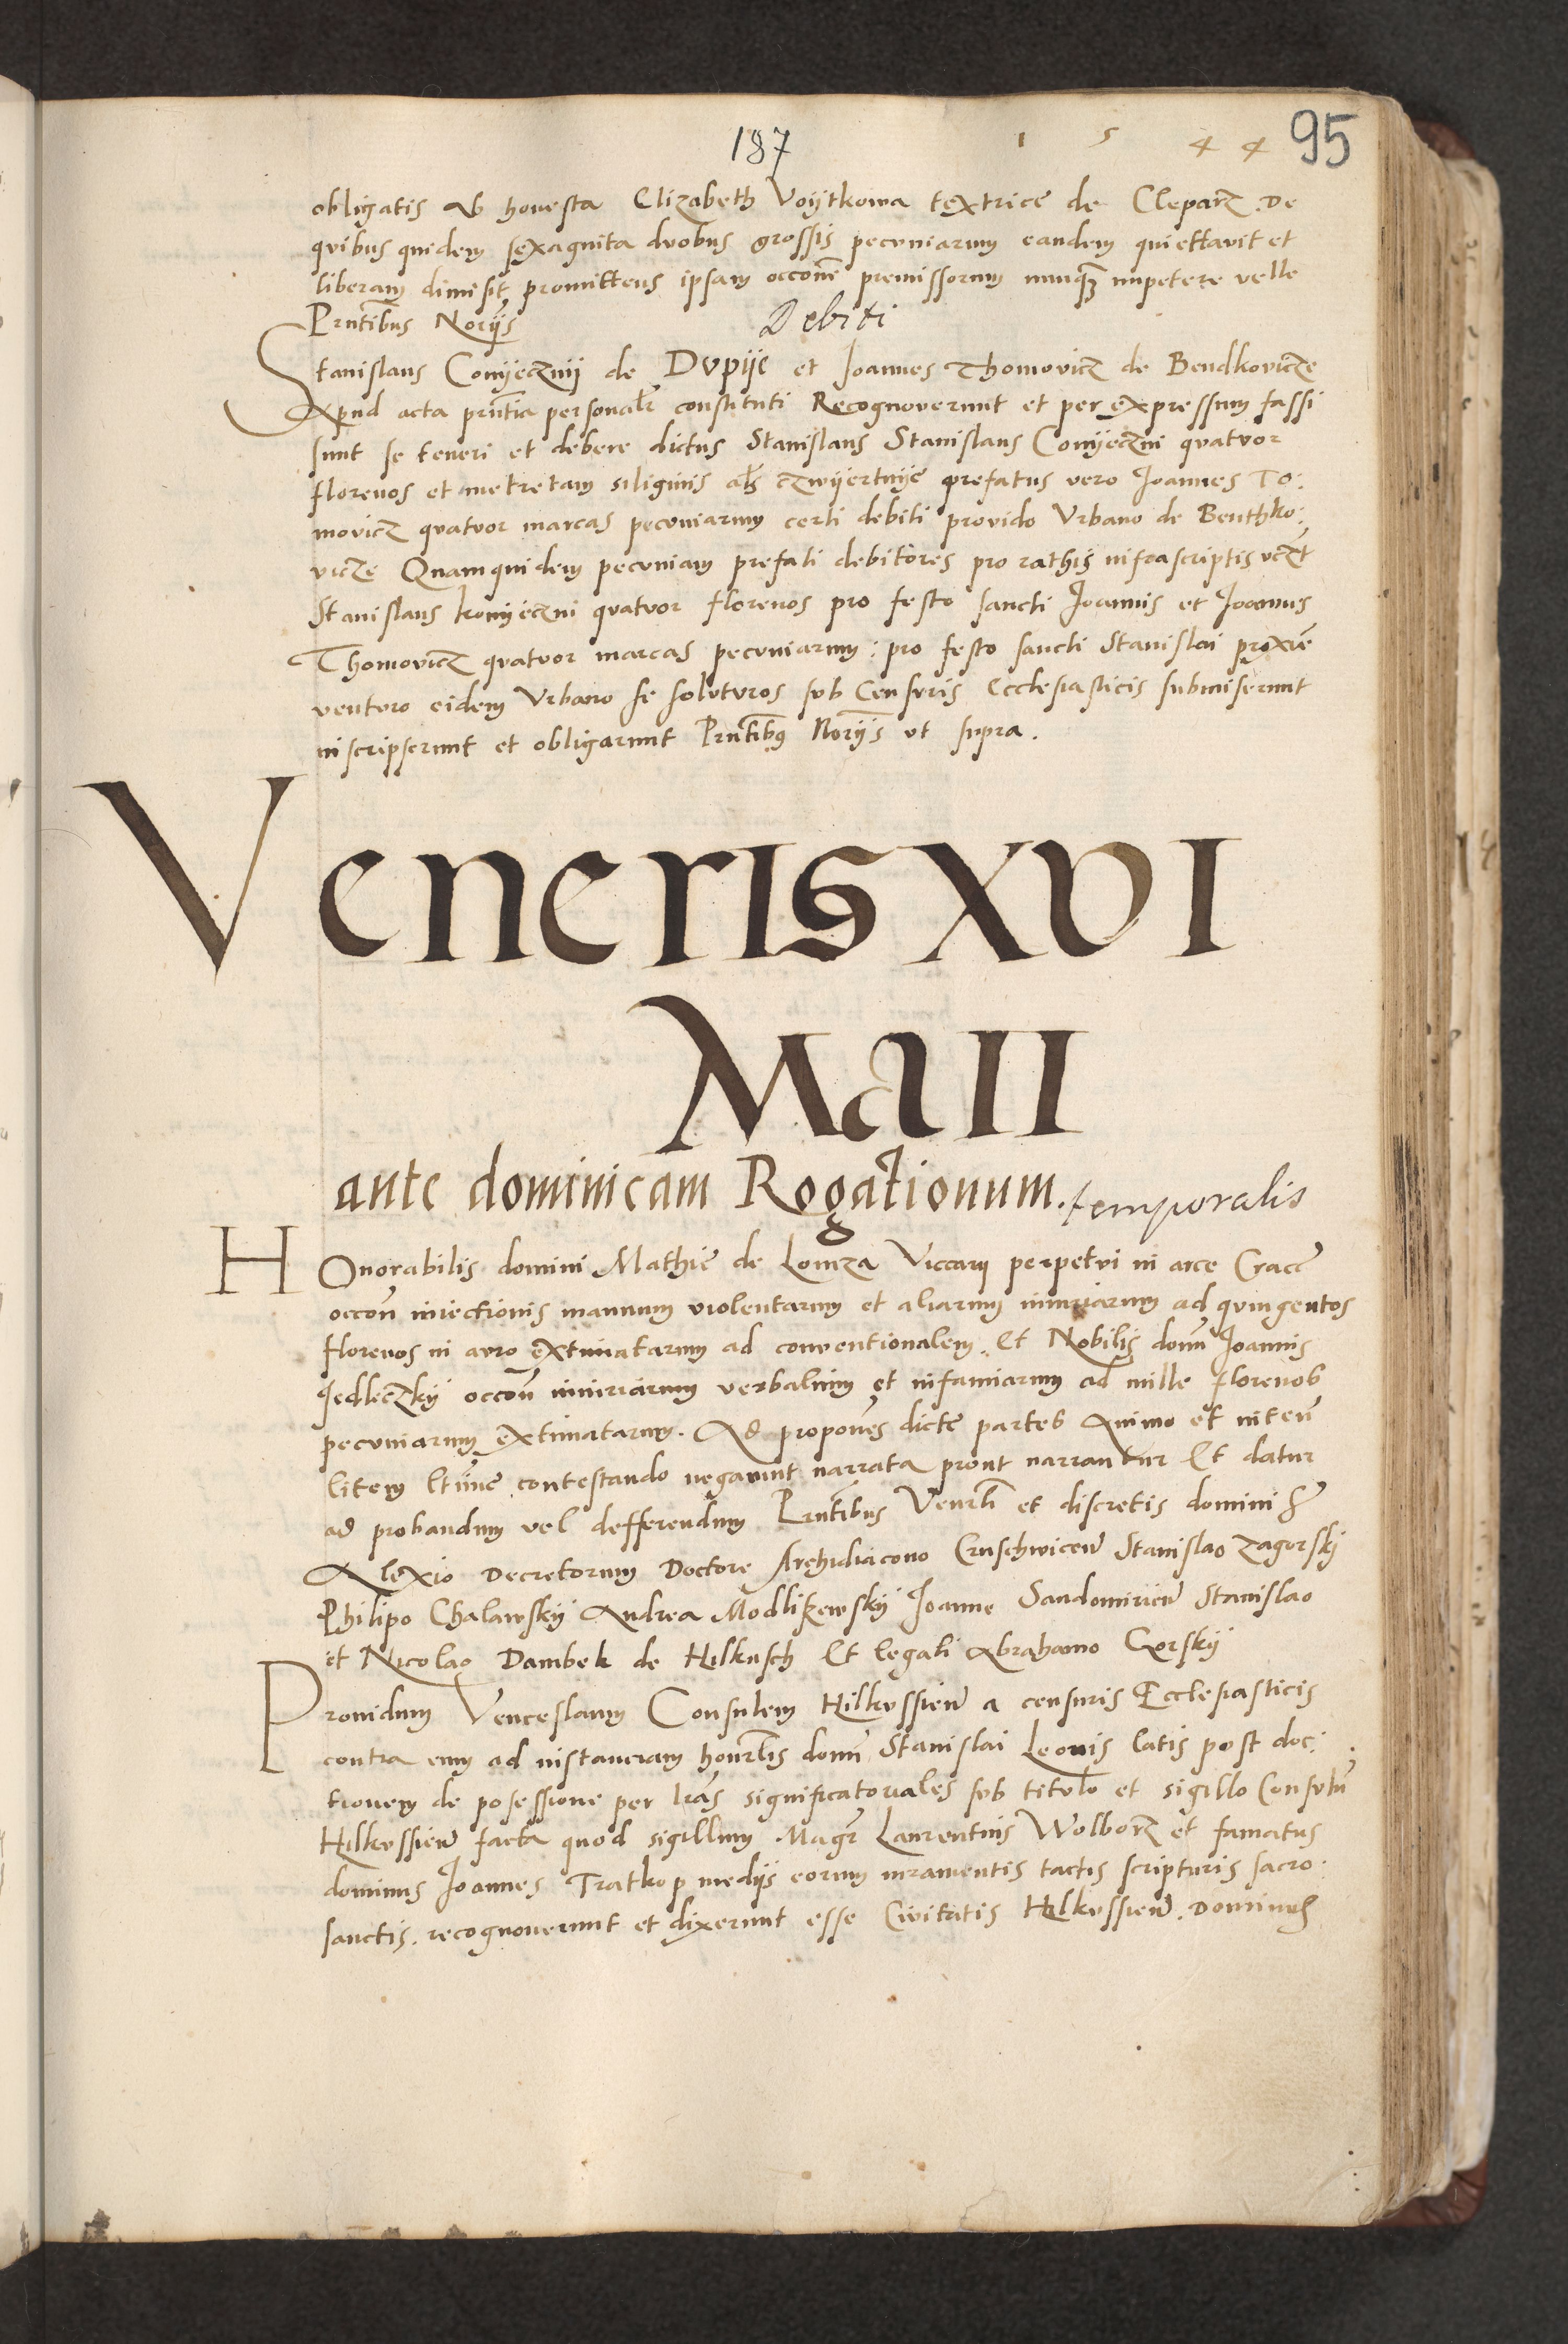 187 1 5 4 4 95
obligatis ab honesta Elizabeth Voijtkowa textrice de Cleparz. De
quibus quidem sexaginta duobus grossis pecuniarum eandem quiettavit et
liberam dimisit promittens ipsam occone premissorum nunq impetere velle
Prntibus Norijs Debiti
Stanislaus Conijecznij de Dupije et Joannes Thomovicz de Bendkovicze
Apud acta prntia personalr constituti Recognoverunt et per expressum fassi
sunt se teneri et debere dictus Stanislaus Stanislaus Conijeczni quatuor
florenos et metretam siliginis als czwijertnije prefatus vero Joannes To:
movicz quatuor marcas pecuniarum certi debiti provido Urbano de Benthko:
vicze Quamquidem pecuniam prefati debitores pro rathis infrascriptis vczt
Stanislaus konijeczni quatuor florenos pro festo sancti Joannis et Joannes
Thomovicz quatuor marcas pecuniarum: pro festo sancti Stanislai proxie
venturo eidem Urbano se soluturos sub Censuris Ecclesiasticis submiserunt
inscripserunt et obligarunt Prntibus Norijs ut supra.
Veneris XVI
Maii
ante dominicam Rogationum. temporalis
HOnorabilis domini Mathie de Lomza Viccarij perpetui in arce Cracc
occon iniectionis manuum violentarum et aliarum iniuriarum ad quingentos
florenos in auro extimatarum ad conventionalem. Et Nobilis domi Joannis
Jedleczkij occon iniuriarum verbalium et infamiarum ad mille florenos
pecuniarum extimatarum. Ad propones dicte partes Animo et inten
litem ltime contestando negarunt narrata prout narrantur Et datur
ad probandum vel defferendum Prntibus Venrli et discretis domini
Alexio Decretorum Doctore Archidiacono Cruschwicen Stanislao Zagorskij
Philipo Chalawskij Andrea Modlizewskij Joanne Sandomirien Stanislao
et Nicolao Dambek de Hilkusch Et legali Abrahamo Gorskij
Providum Venceslaum Consulem Hilkussien a censuris Ecclesiasticis
contra eum ad instanciam honrlis domi Stanislai Leonis latis post doc:
tionem de posessione per lras significatoriales sub titulo et sigillo Consulu
Hilkussien facta quod sigillum Magr Laurentius Wolborz et famatus
dominus Joannes Tratkop medijs eorum iuramentis tactis scripturis sacro:
sanctis. recognoverunt et dixerunt esse Civitatis Hilkussien. Dominus